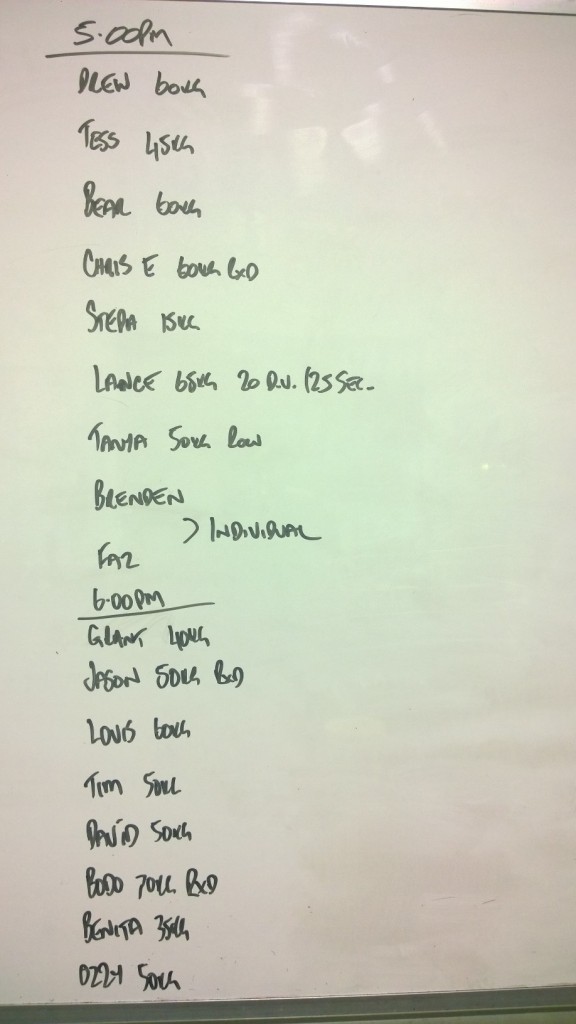 5.00PM
DREW 60KG
TESS 45KG
BEAR 60KG
CHRIS E 60KG RXD
STEPH 15KG
LANCE 65KG 20 D.U. /25 SEC.
TANYA 50KG ROW
BRENDEN
> INDIVIDUAL
FAZ
6.00PM
GRANT 40KG
JASON 50KG RXD
LOUIS 60KG
TIM 50KG
DAVID 50KG
BODO 70KG RXD
BENITA 35KG
OZZY 50KG